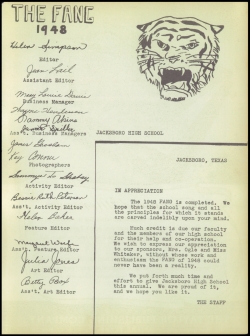 THE FANG
1948
Helen Simpson
Editor
Juan
Assistant Editor
Mary Louise
Business Manager
Wayne
Sammy Akins
Ass't. Business Managers
Photographers
Activity Editor
Bessie Ruth
Ass't. Activity Editor
Helen Baker
Feature Editor
Margaret
Julia Jones
Art Editor
Betty
Ass't. Art Editor
JACKSBORO HIGH SCHOOL
JACKSBORO, TEXAS
IN APPRECIATION
The 1948 FANG is completed. We
hope that the school song and all
the principles for which it stands
are carved indelibly upon your mind.
Much credit is due our faculty
and the members of our high school
for their help and co-operation.
We wish to express our appreciation
to our sponsors, Mrs. Sale and Miss
Whitaker, without whose work and
enthusiasm the FANG of 1948 could
never have been a reality.
We put forth much time and
effort to give Jacksboro High School
this annual. We are proud of it,
and we hope you like it.
THE STAFF